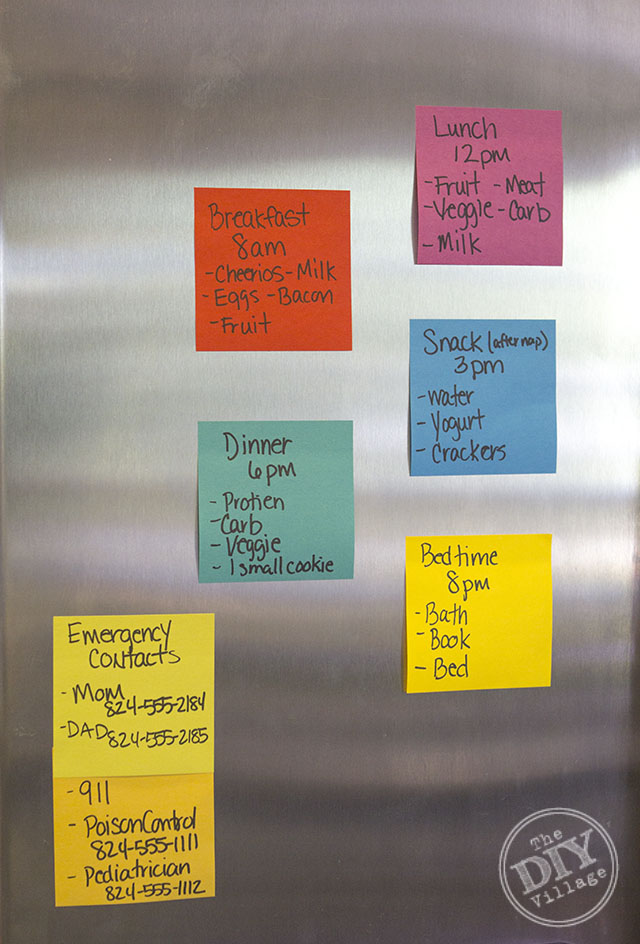 Lunch
12pm
-Fruit -Meat
-Veggie -Carb
-Milk
Breakfast
8am
-Cheerios-Milk
-Eggs -Bacon
-Fruit
Snack (after nap)
3pm
-water
-Yogurt
-Crackers
Dinner
6pm
-Protien
-Carb
-Veggie
-1 small cookie
Bedtime
8pm
-Bath
-Book
-Bed
Emergency
Contacts
-Mom
824-555-2184
-DAD 824-555-2185
-911
-Poison Control
824-555-1111
-Pediatrician
824-555-1112
The
DIY
Village